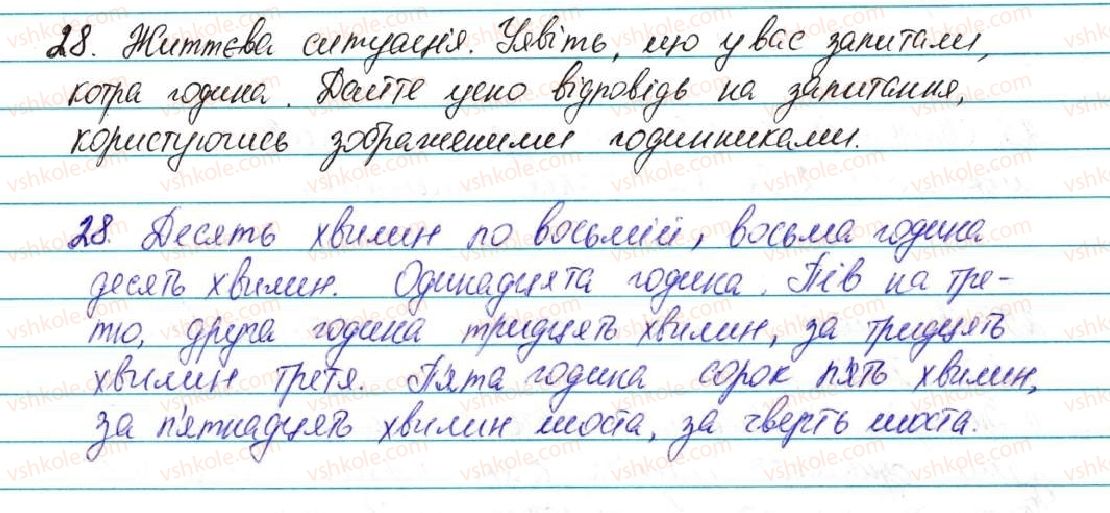 28. Життєва ситуація. Уявіть, що у вас запитали,
котра година. Дайте усно відповідь на запитання,
користуючись зображеними годинниками.
28. Десять хвилин по восьмій, восьма година
десять хвилин. Одинадцята година. Пів на тре-
тю, друга година тридцять хвилин, за тридцять
хвилин третя. П'ята година сорок п'ять хвилин,
за п'ятнадцять хвилин шоста, за чверть шоста.